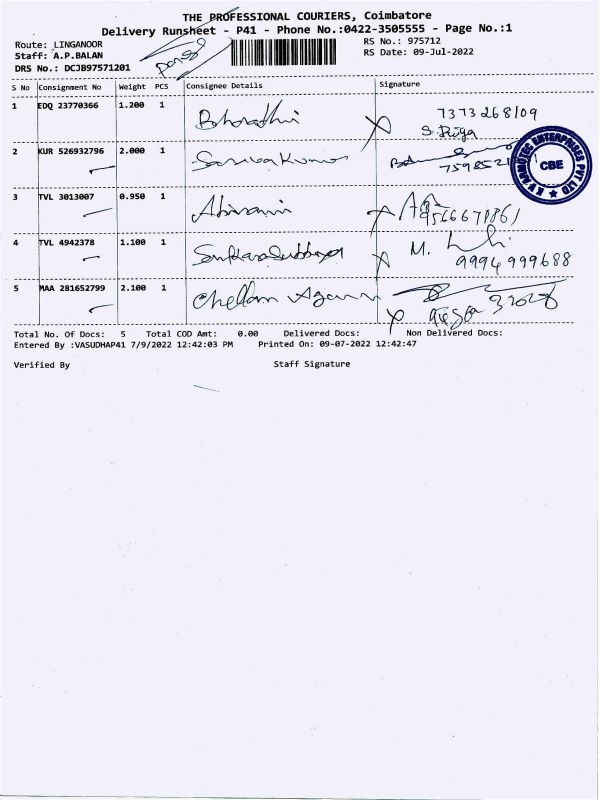 THE PROFESSIONAL COURIERS, Coimbatore
Delivery Runsheet - P41 - Phone No.:0422-3505555 - Page No.:1
Route: LINGANOOR
RS No.: 975712
Staff: A.P.BALAN
RS Date: 09-Jul-2022
DRS No.: DCJB97571201
S No Consignment No Weight PCS Consignee Details Signature
1 EDQ 23770366 1.200 1 Bharathi 7373268109
S. Priya
2 KUR 526932796 2.000 1 Saravanakumar 7598521
3 TVL 3013007 0.950 1 Abirami 9566671861
4 TVL 4942378 1.100 1 M.
9994999688
5 MAA 281652799 2.100 1 Chellam
K V AAMUTEC ENTERPRISES PVT LTD
CBE
Total No. Of Docs: 5 Total COD Amt: 0.00 Delivered Docs: Non Delivered Docs:
Entered By :VASUDHAP41 7/9/2022 12:42:03 PM Printed On: 09-07-2022 12:42:47
Verified By Staff Signature